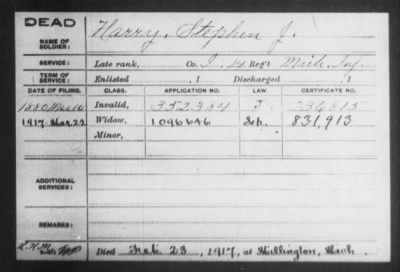 DEAD
NAME OF SOLDIER: Harry, Stephen J.
SERVICE: Late rank, Co. I, 14 Reg't Mich. Inf.
TERM OF SERVICE: Enlisted , 1 Discharged , 1
DATE OF FILING. CLASS. APPLICATION NO. LAW. CERTIFICATE NO.
1880 Mar Invalid, 352384 336313
1917 Mar. 22 Widow, 1096646 831,913
Minor,
ADDITIONAL SERVICES:
REMARKS:
Died Feb. 23, 1917, at Millington, Mich.